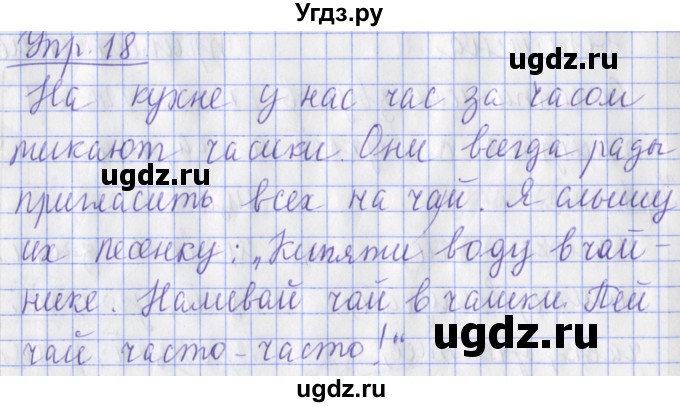 Угдз.ру
Упр. 18
ugdz.ru
На кухне у нас час за часом
тикают часики. Они всегда рады
ugdz.ru
пригласить всех на чай. Я слышу
их песенку: „Кипяти воду в чай-
нике. Наливай чай в чашки. Пей
ugdz.ru
чай часто-часто!“
ugdz.ru